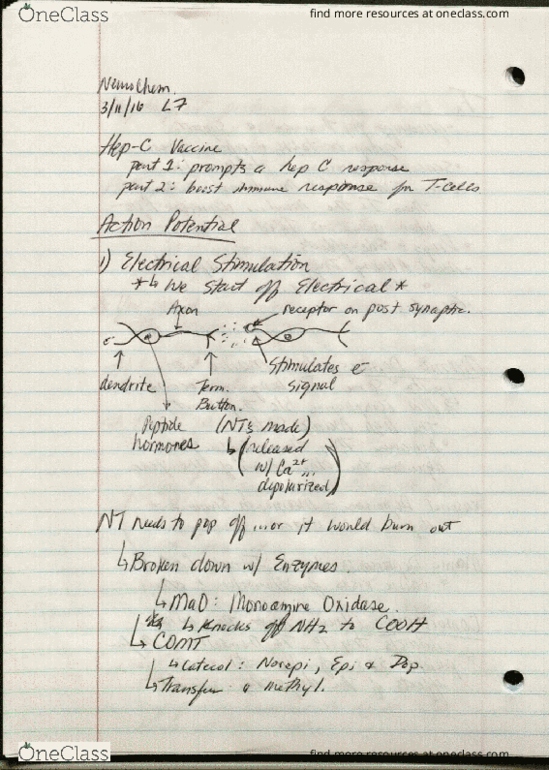 OneClass
find more resources at oneclass.com
NeuroChem.
3/11/16 L7
Hep-C Vaccine
part 1: prompts a hep C response
part 2: boost immune response for T-cells
Action Potential
1) Electrical Stimulation
*↳ We Start off Electrical *
Axon
receptor on post synaptic.
e-
dendrite
Term.
Button.
Stimulates e-
signal
Peptide
hormones
(NTs made)
↳ (released
w/ Ca2+
depolarized)
NT needs to pop off ... or it would burn out
↳ Broken down w/ Enzymes
↳ MaO: Monoamine Oxidase.
↳ Knocks off NH2 to COOH
↳ COMT
↳ Catecol: Norepi, Epi & Dop.
↳ Transfer a methyl.
OneClass
find more resources at oneclass.com